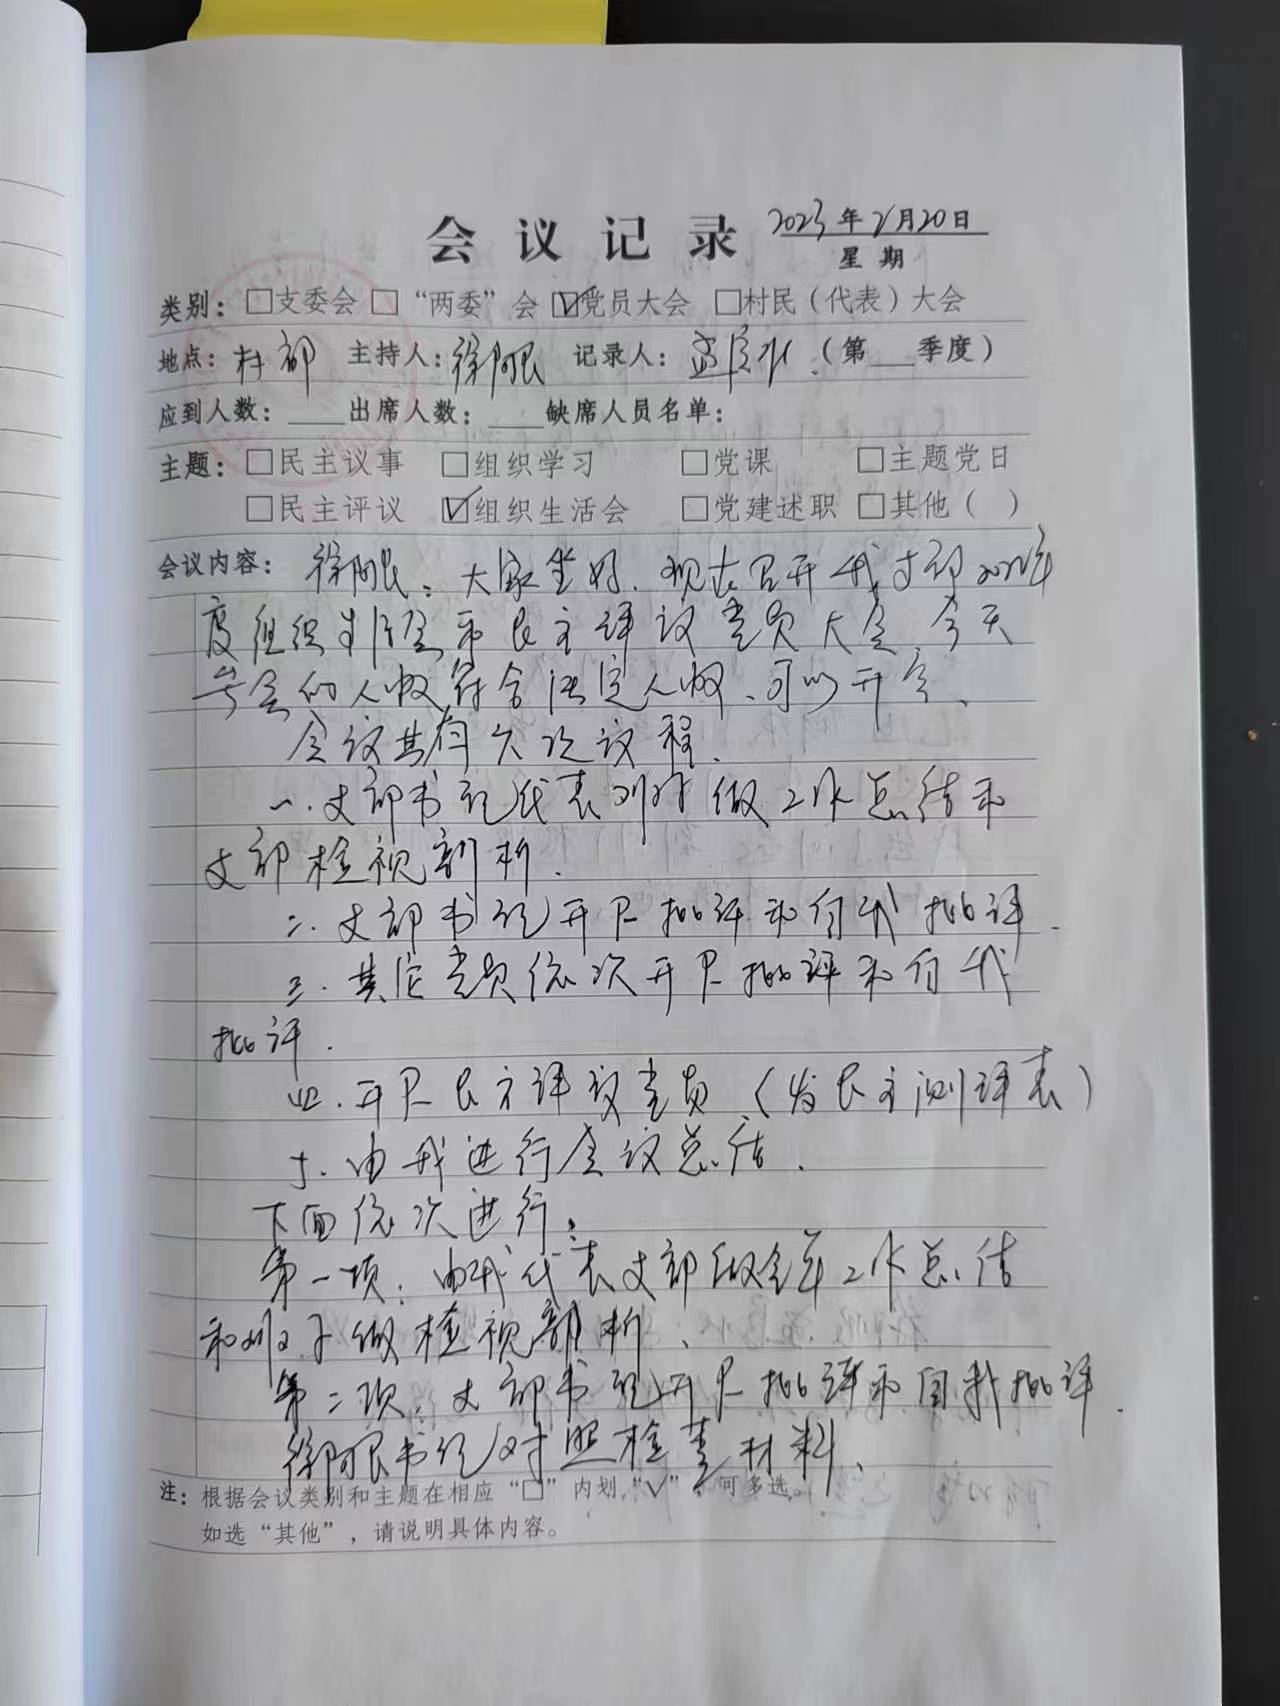 会议记录 2023年2月20日
星期
类别：□支委会 □“两委”会 ☑党员大会 □村民（代表）大会
地点：村部 主持人：徐阿根 记录人：（第 季度）
应到人数： 出席人数： 缺席人员名单：
主题：□民主议事 □组织学习 □党课 □主题党日
□民主评议 ☑组织生活会 □党建述职 □其他（ ）
会议内容：徐阿根：大家坐好．现在召开我支部2022年
度组织生活会和民主评议党员大会、今天
参会的人数符合法定人数、可以开会、
会议共有六项议程．
一．支部书记代表班子做工作总结和
支部检视剖析．
二．支部书记开展批评和自我批评．
三．其它党员依次开展批评和自我
批评．
四．开展民主评议党员（发民主测评表）
五．由我进行会议总结．
下面依次进行：
第一项：由我代表支部做全年工作总结
和班子做检视剖析、
第二项：支部书记开展批评和自我批评．
徐阿根书记对照检查材料、
注：根据会议类别和主题在相应“□”内划“√”，可多选。
如选“其他”，请说明具体内容。